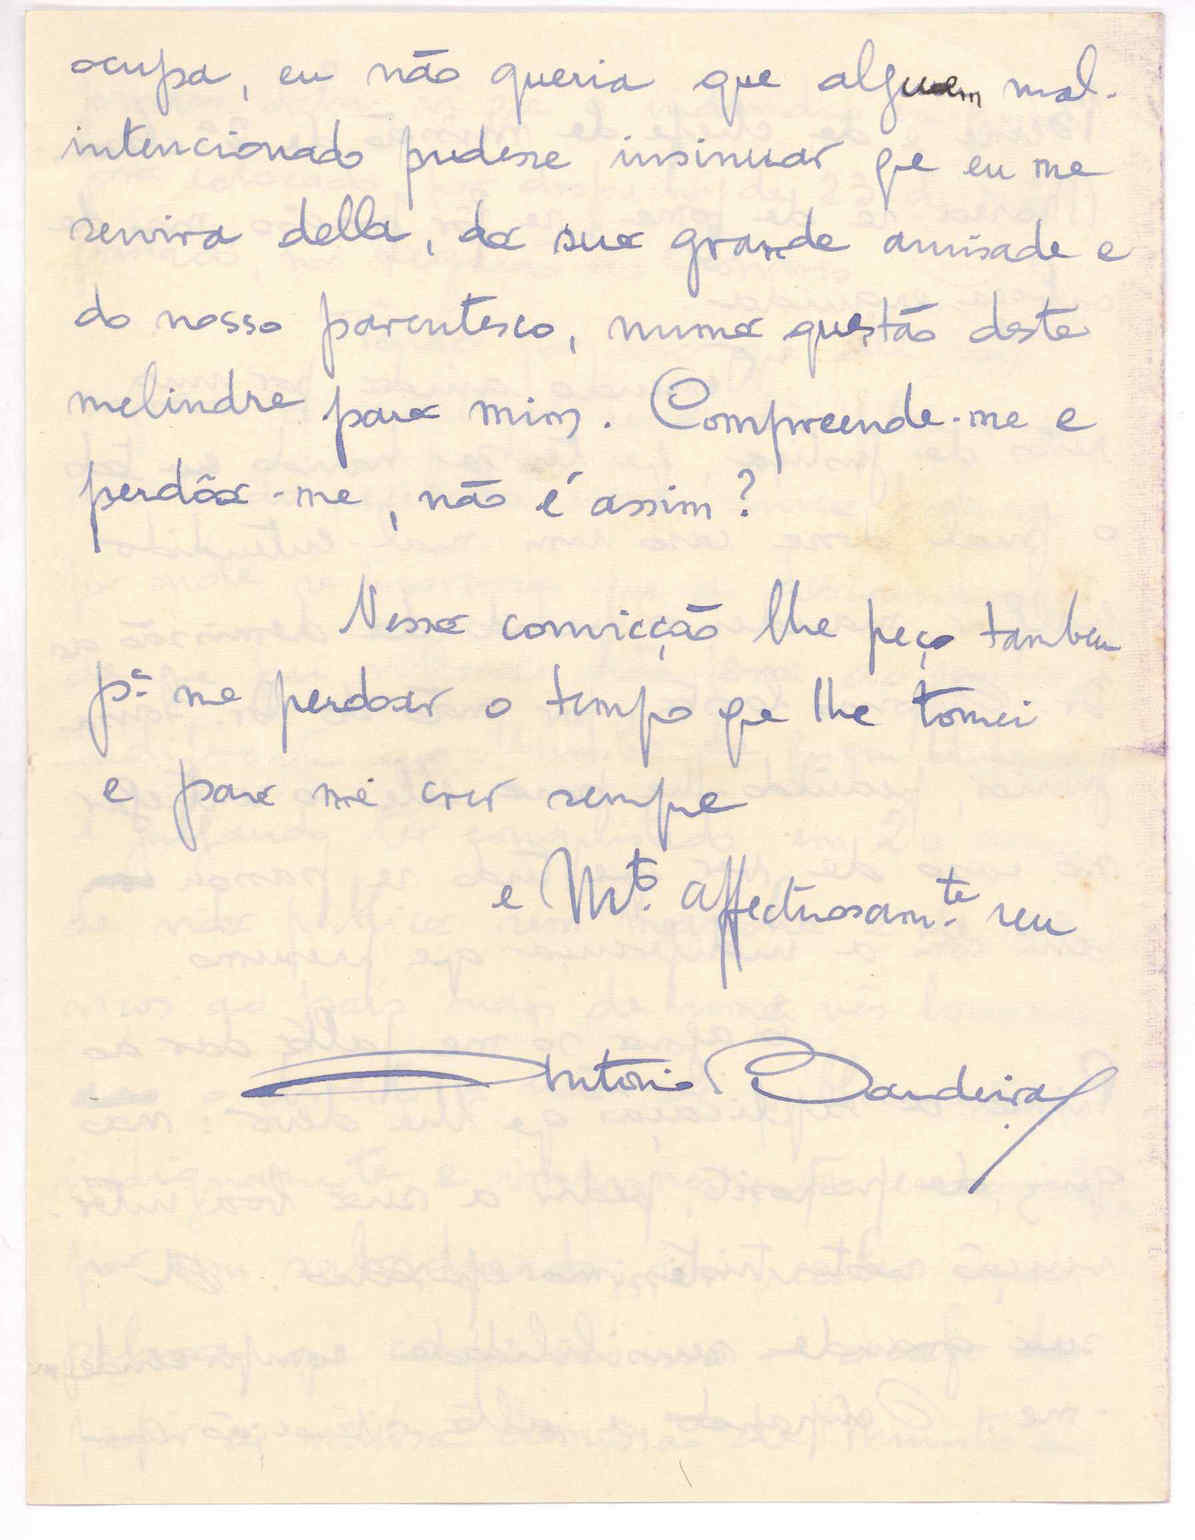 ocupa, eu não queria que alguem mal-
intencionado pudesse insinuar qe eu me
servira della, da sua grande amisade e
do nosso parentesco, numa questão deste
melindre para mim. Compreende-me e
perdôa-me, não é assim?
Nessa convicção lhe peço tambem
pª me perdoar o tempo qe lhe tomei
e para me crer sempre
e Mto. affectuosamte. seu
Antonio Bandeira